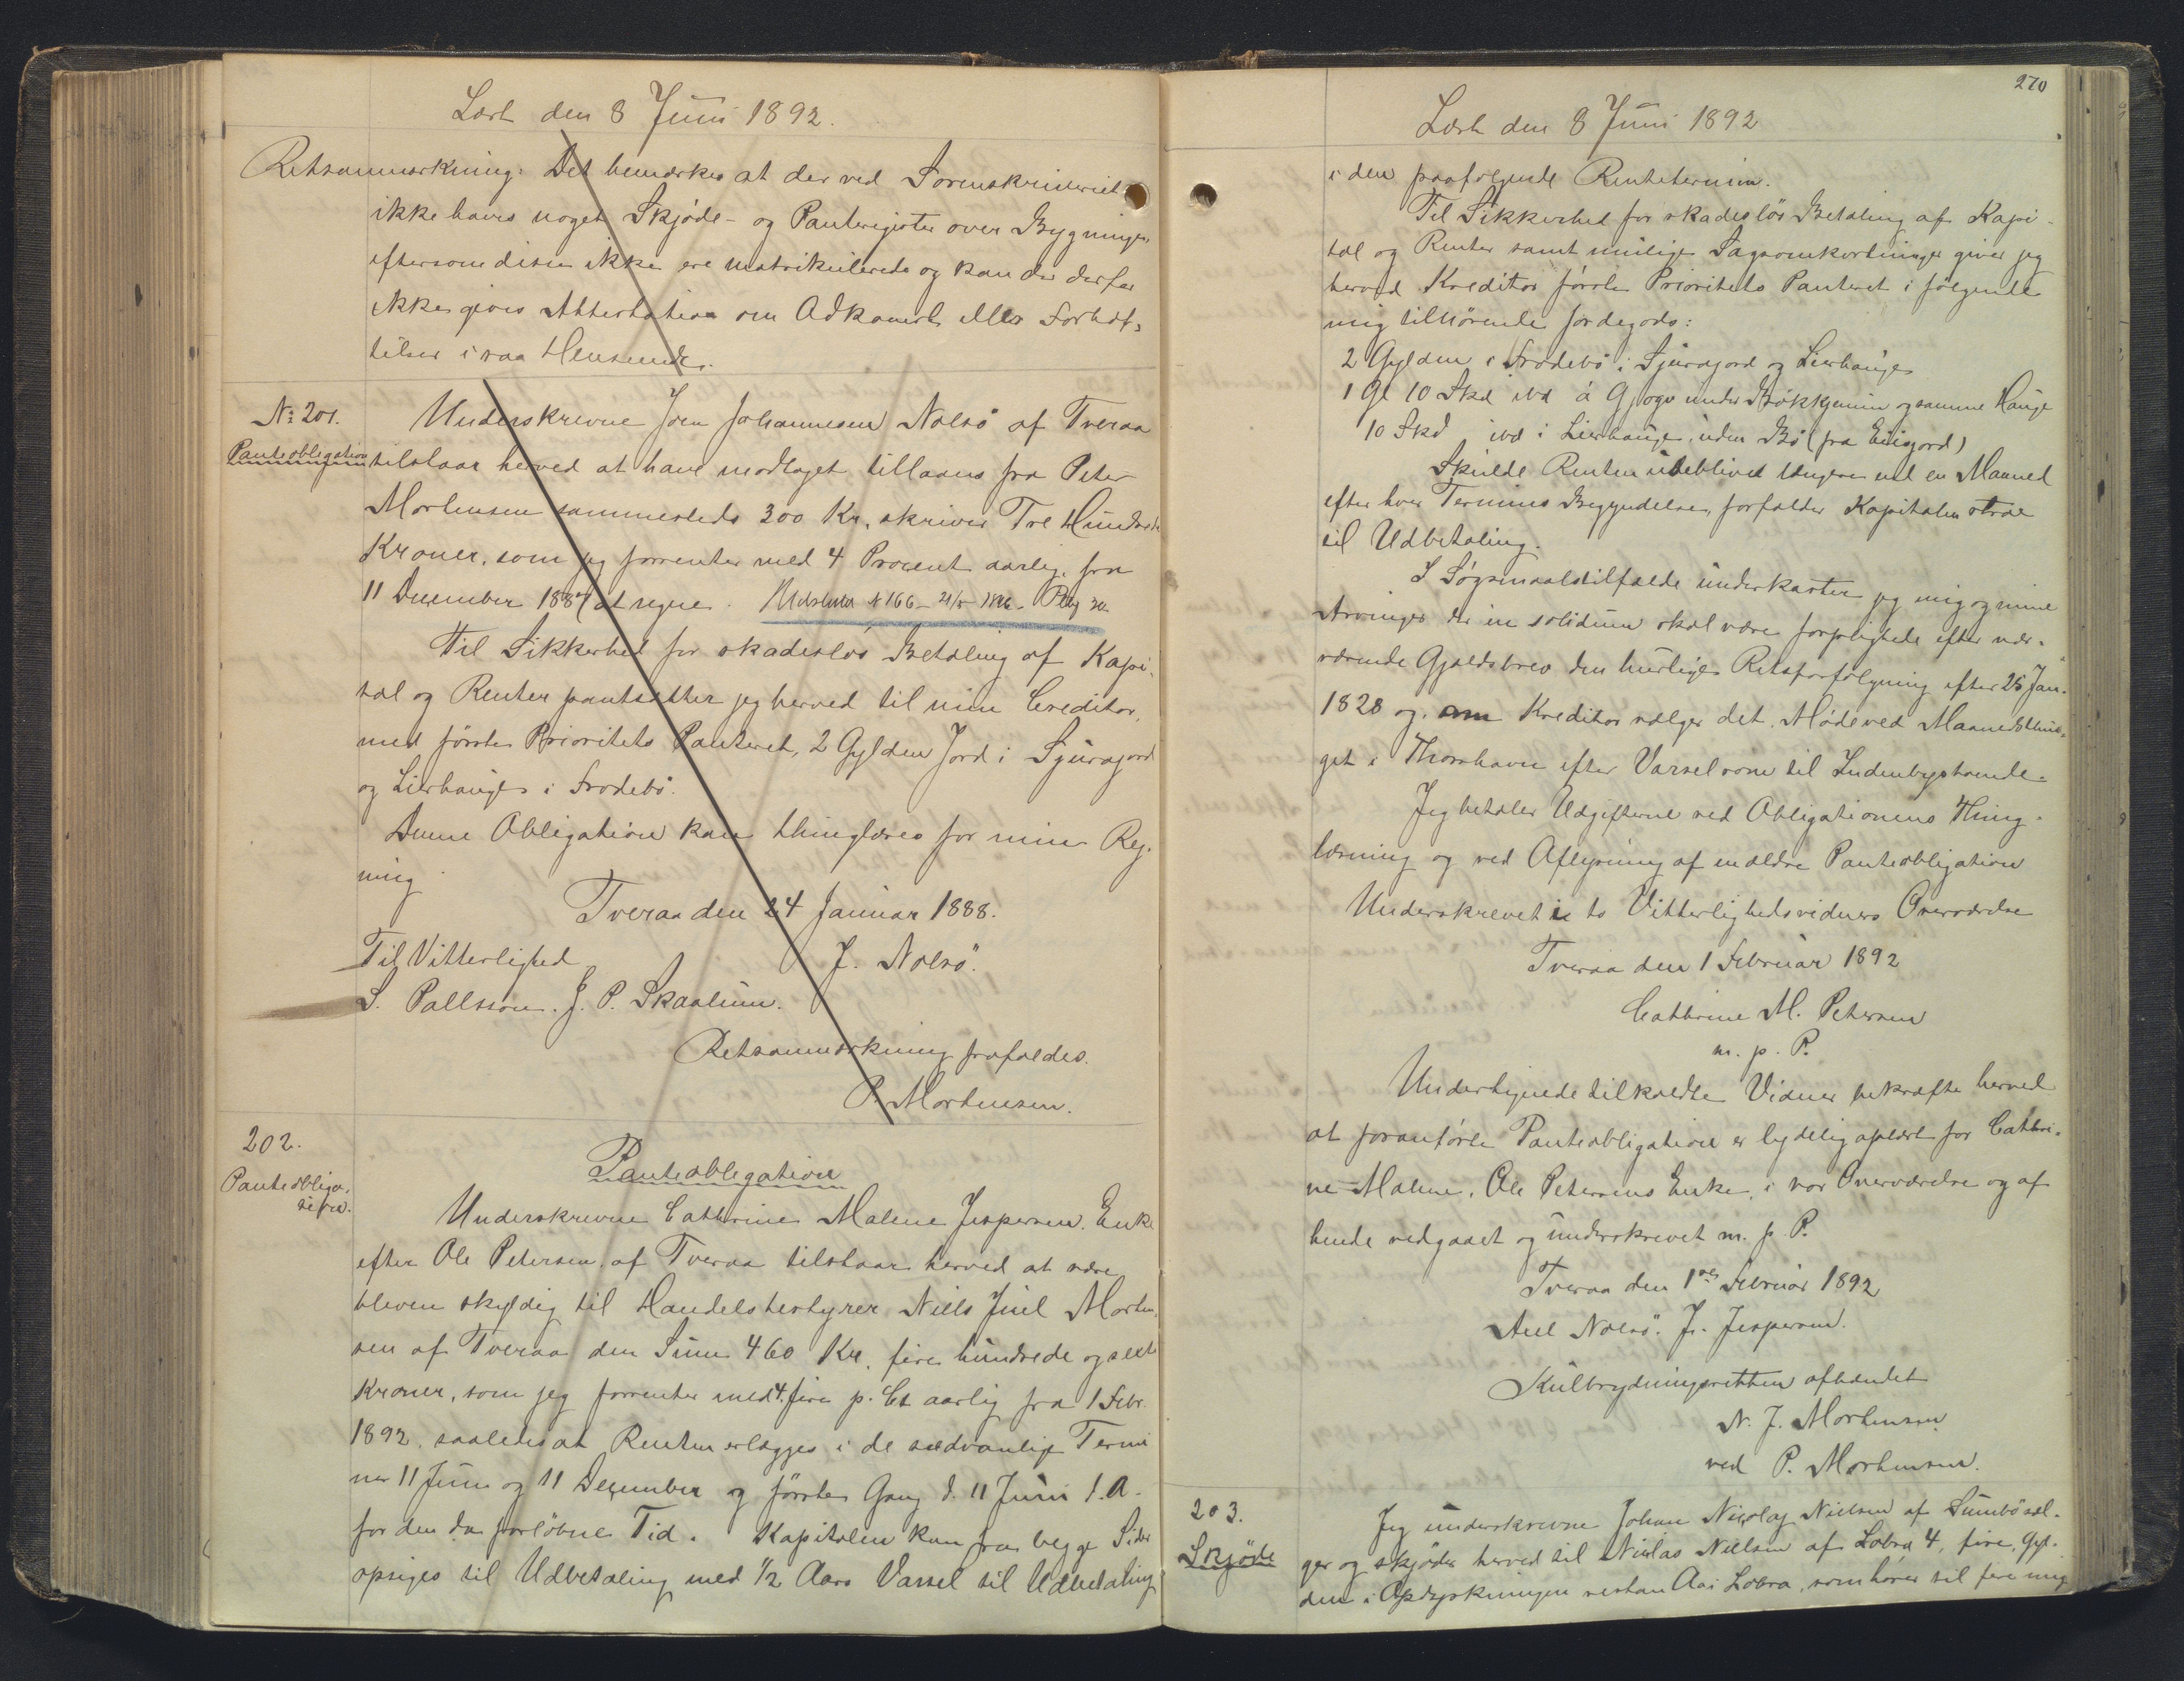 Læst den 8 Juni 1892.
Retsanmærkning: Det bemærkes at der ved Sorenskriveriet
ikke haves noget Skjøde- og Panteregister over Bygninger,
eftersom disse ikke ere matrikulerede og kan der derfor
ikke gives Attestation om Adkomst eller Forhæf-
telser i saa Henseende.
No 201.
Panteobligation
Underskrevne Joen Johannesen Nolsö af Tveraa
tilstaar herved at have modtaget tillaans fra Peter
Mortensen sammesteds 300 Kr, skriver Tre Hundrede
Kroner, som jeg forrenter med 4 Procent aarlig, fra
11 December 1887 at regne. Udslettet № 166 - 21/5 1896.
Til Sikkerhed for skadeslös Betaling af Kapi-
tal og Renter pantsætter jeg herved til min Creditor,
med förste Prioritets Panteret, 2 Gylden Jord i Sjuragjord
og Lierhauge i Frodebö.
Denne Obligation kan thinglæses for min Reg-
ning
Tveraa den 24 Januar 1888.
Til Vitterlighed
J. Nolsö.
S. Pallsson. J. P. Skaalum.
Retsanmærkning frafaldes.
P. Mortensen.
202.
Panteobliga-
tion.
Panteobligation
Underskrevne Cathrine Malene Jespersen, Enke
efter Ole Petersen, af Tveraa tilstaar herved at være
bleven skyldig til Handelsbestyrer Niels Juel Morten-
sen af Tveraa den Sum 460 Kr, fire hundrede og sexti
Kroner, som jeg forrenter med 4, fire p. Ct aarlig fra 1 Febr.
1892, saaledes at Renten erlægges i de sædvanlige Termi
ner 11 Juni og 11 December og förste Gang d. 11 Juni d. A.
for den da forløbne Tid. Kapitalen kan fra begge Sider
opsiges til Udbetaling med 1/2 Aars Varsel til Udbetaling
270
Læst den 8 Juni 1892
i den paafølgende Rentetermin.
Til Sikkerhed for skadeslös Betaling af Kapi-
tal og Renter samt mulige Sagsomkostninger giver jeg
herved Kreditor förste Prioritets Panteret i fölgende
mig tilhörende Jordegods:
2 Gylden i Frodebö i Sjuragjord og Lierhauge
1 Gl 10 Skd ibd á Gjogv under Bökkjenum og samme Hauge
10 Skd ibd i Lierhauge, uden Bö (fra Eiisgord)
Skulde Renten udeblive længere end en Maaned
efter hver Termins Begyndelse, forfalder Kapitalen strax
til Udbetaling.
I Søgsmaalstilfælde underkaster jeg mig og mine
Arvinger der in solidum skal være forpligtede efter nær-
værende Gjældsbrev den hurtige Retsforfölgning efter 25 Jan.
1828 og, om Kreditor vælger det, Møde ved Maanedsthin-
get i Thorshavn efter Varsel som til Indenbysboende.
Jeg betaler Udgifterne ved Obligationens Thing-
læsning og ved Aflysning af en ældre Panteobligation
Underskrevet i to Vitterlighedsvidners Overværelse
Tveraa den 1 Februar 1892
Cathrine M. Petersen
m. p. P.
Undertegnede tilkaldte Vidner bekræfte herved
at foranförte Panteobligation er lydelig oplæst for Cathri-
ne Malene, Ole Petersens Enke, i vor Overværelse og af
hende vedgaaet og underskrevet m. p. P.
Tveraa den 1ste Februar 1892
Axel Nolsö. J. Jespersen.
Kulbrydningsretten afhændet
N. J. Mortensen
ved P. Mortensen.
203.
Skjöde
Jeg underskrevne Johan Nicolaj Nielsen af Sumbö sæl-
ger og skjøder herved til Niclas Nielsen af Lobra 4, fire, Gyl-
den i Opdyrkningen vestan Aai Lobra, som hører til fire mig